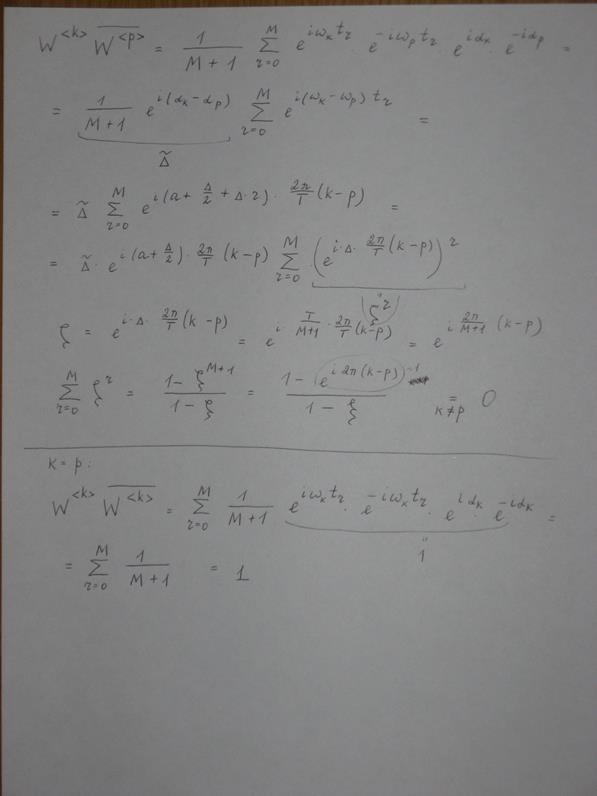 W^{<k>} \overline{W^{<p>}} = \frac{1}{M+1} \sum_{r=0}^{M} e^{iω_k t_r} · e^{-iω_p t_r} · e^{iα_k} · e^{-iα_p} =
= \frac{1}{M+1} e^{i(α_k-α_p)} \sum_{r=0}^{M} e^{i(ω_k-ω_p) t_r} =
\tilde{Δ}
= \tilde{Δ} \sum_{r=0}^{M} e^{i(a+\frac{Δ}{2}+Δ·r)·\frac{2π}{T}(k-p)} =
= \tilde{Δ} · e^{i(a+\frac{Δ}{2})·\frac{2π}{T}(k-p)} \sum_{r=0}^{M} (e^{i·Δ·\frac{2π}{T}(k-p)})^r
ζ^r
ζ = e^{i·Δ·\frac{2π}{T}(k-p)} = e^{i·\frac{T}{M+1}·\frac{2π}{T}(k-p)} = e^{i\frac{2π}{M+1}(k-p)}
\sum_{r=0}^{M} ζ^r = \frac{1-ζ^{M+1}}{1-ζ} = \frac{1-e^{i2π(k-p)}}{1-ζ} = 0
=1
k≠p
k=p:
W^{<k>} \overline{W^{<k>}} = \sum_{r=0}^{M} \frac{1}{M+1} e^{iω_k t_r} · e^{-iω_k t_r} · e^{iα_k} · e^{-iα_k} =
1
= \sum_{r=0}^{M} \frac{1}{M+1} = 1